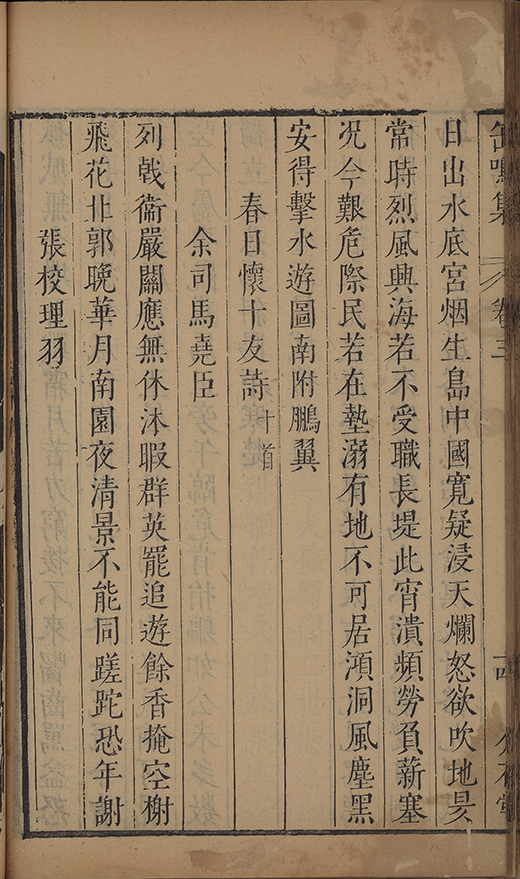 缶鳴集 卷三 十四
日出水底宮烟生島中國寬疑浸天爛怒欲吹地昃
常時烈風興海若不受職長堤此宵潰頻勞負薪塞
况今艱危際民若在墊溺有地不可居澒洞風塵黑
安得擊水遊圖南附鵬翼
春日懷十友詩十首
余司馬堯臣
列戟衛嚴關應無休沐暇群英罷追遊餘香掩空榭
飛花北郭晚華月南園夜清景不能同蹉跎恐年謝
張校理羽